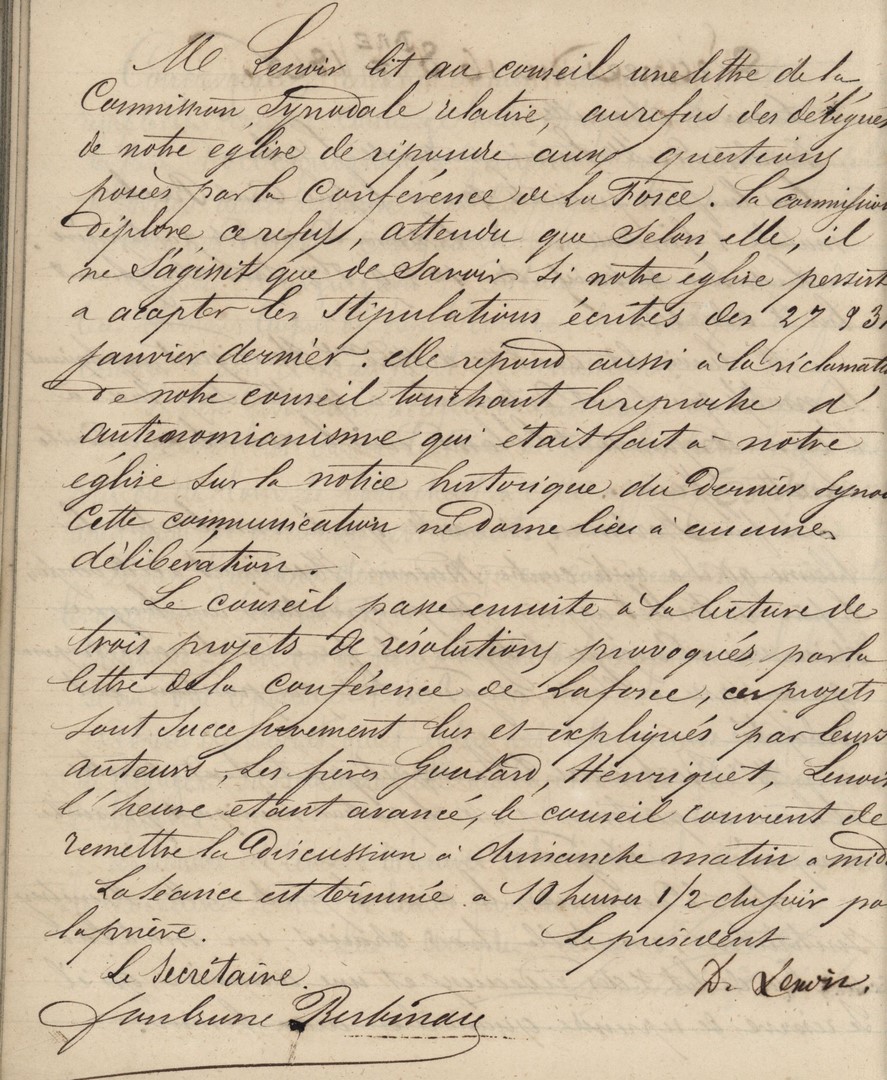 Mr Lenoir lit au conseil une lettre de la
Commission Synodale relative, au refus des délégués
de notre église de répondre aux questions
posées par la Conférence de La Force. la commission
déplore ce refus, attendu que selon elle, il
ne s'agissit que de savoir si notre église persist
a accepter les stipulations écrites des 27 & 31
janvier dernier. elle repond aussi à la réclamati
de notre conseil touchant le reproche d'
antinomianisme qui était fait à notre
église sur la notice historique du dernier Syno
Cette communication ne donne lieu à aucune
délibération.
Le conseil passe ensuite à la lecture de
trois projets de résolutions provoqués par la
lettre de la Conférence de Laforce, ces projets
sont successivement lus et expliqués par leurs
auteurs, les frères Goulard, Henriquet, Lenoir
l'heure etant avancé, le conseil convient de
remettre la discussion à dimanche matin a midi
La séance est terminée à 10 heures 1/2 du soir pa
la prière.
Le président
Le Secrétaire.
Dr Lenoir.